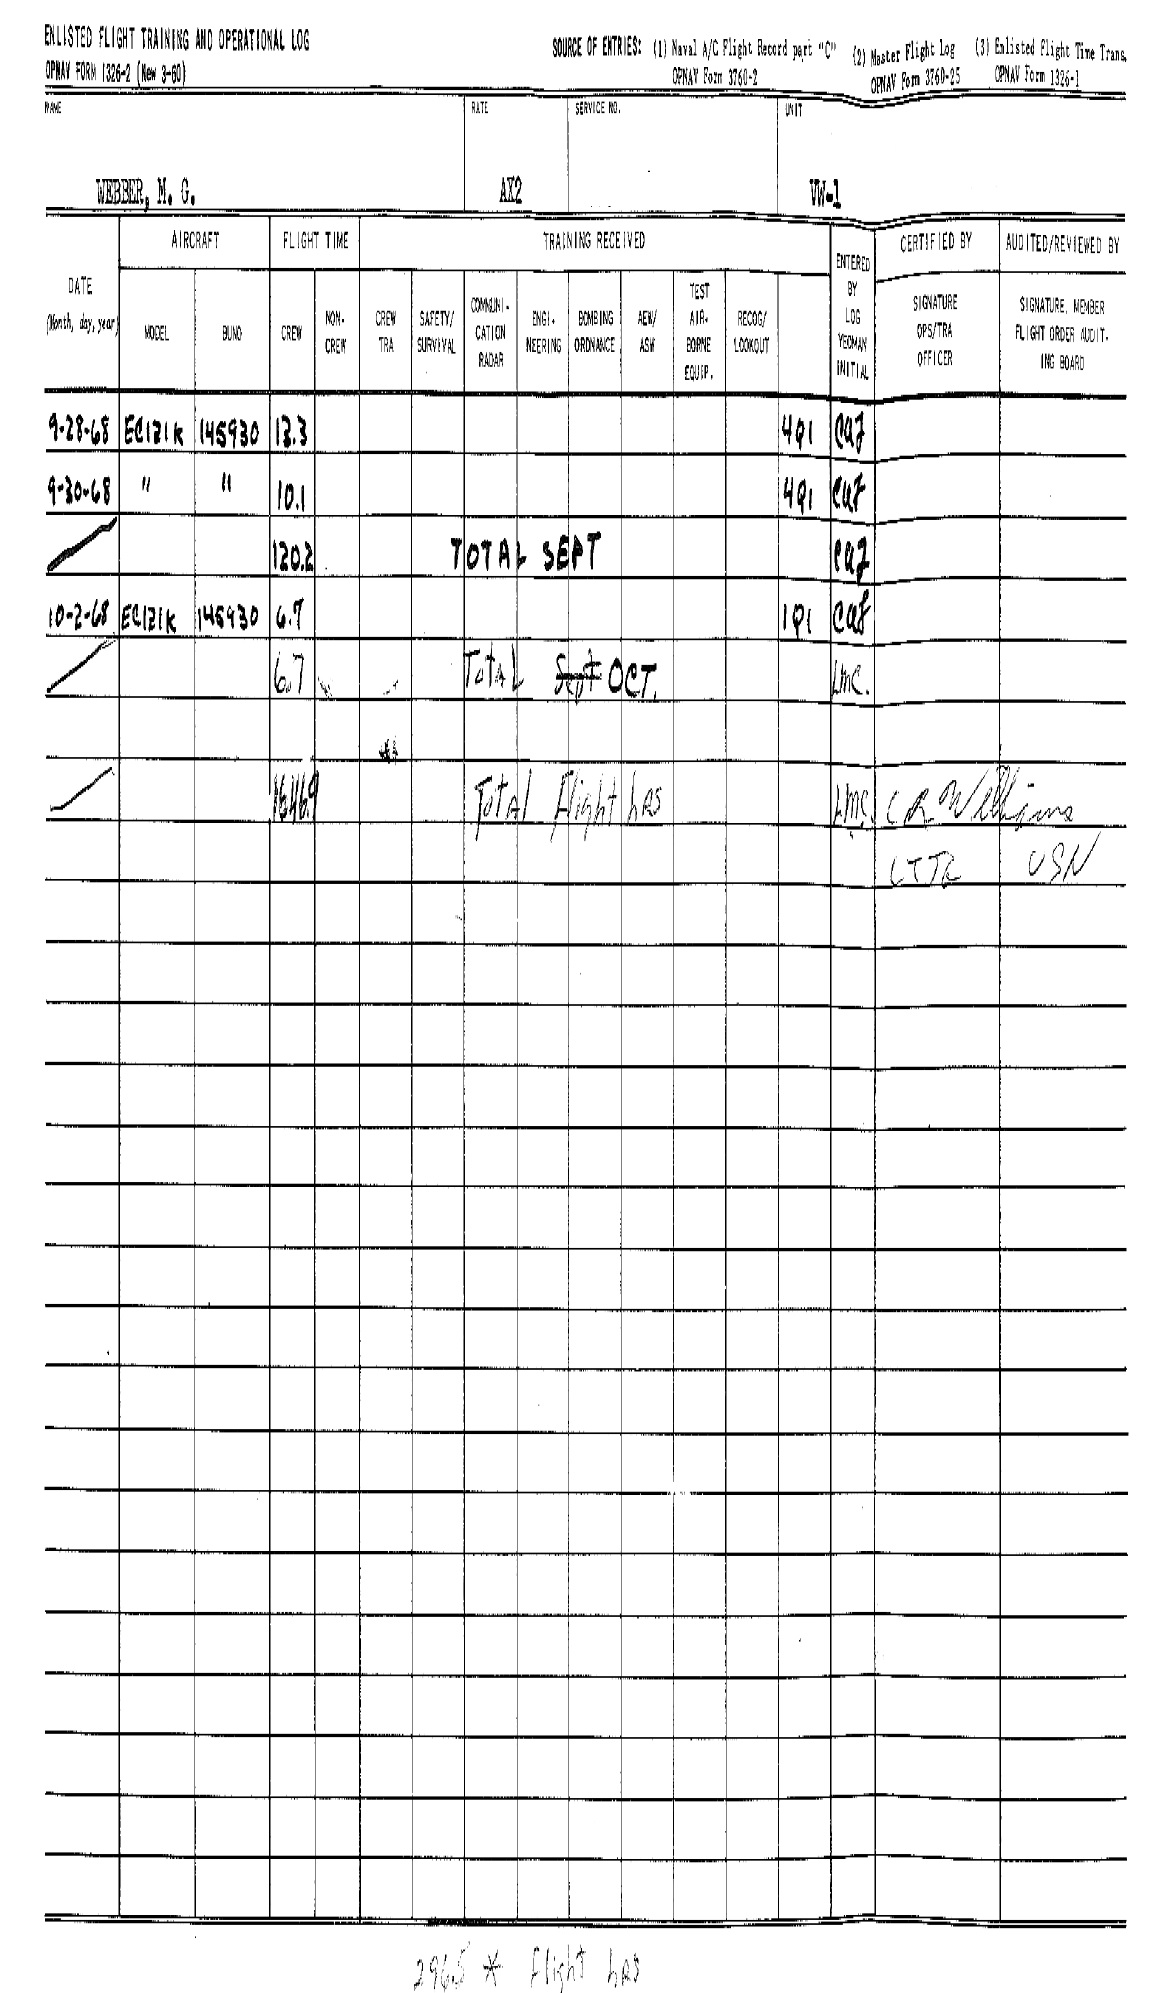 ENLISTED FLIGHT TRAINING AND OPERATIONAL LOG
OPNAV FORM 1326-2 (New 3-60)
SOURCE OF ENTRIES: (1) Naval A/C Flight Record part "C" (2) Master Flight Log (3) Enlisted Flight Time Trans.
OPNAV Form 3760-2 OPNAV Form 3760-25 OPNAV Form 1326-1
NAME RATE SERVICE NO. UNIT
WEBBER, M. G. AX2 VW-1
AIRCRAFT FLIGHT TIME TRAINING RECEIVED CERTIFIED BY AUDITED/REVIEWED BY
DATE
(Month, day, year)
MODEL
BUNO
CREW
NON-
CREW
CREW
TRA
SAFETY/
SURVIVAL
COMMUNI-
CATION
RADAR
ENGI-
NEERING
BOMBING
ORDNANCE
AEW/
ASW
TEST
AIR-
BORNE
EQUIP.
RECOG/
LOOKOUT
ENTERED
BY
LOG
YEOMAN
INITIAL
SIGNATURE
OPS/TRA
OFFICER
SIGNATURE, MEMBER
FLIGHT ORDER AUDIT-
ING BOARD
9-28-68 EC121K 145930 12.3 4Q1
9-30-68 " " 10.1 4Q1
120.2 TOTAL SEPT
10-2-68 EC121K 145930 6.7 1Q1
6.7 Total Sept OCT. LMC.
1646.9 Total Flight hRS LMC. C R Williams
LTJR USN
2965 * Flight hRS